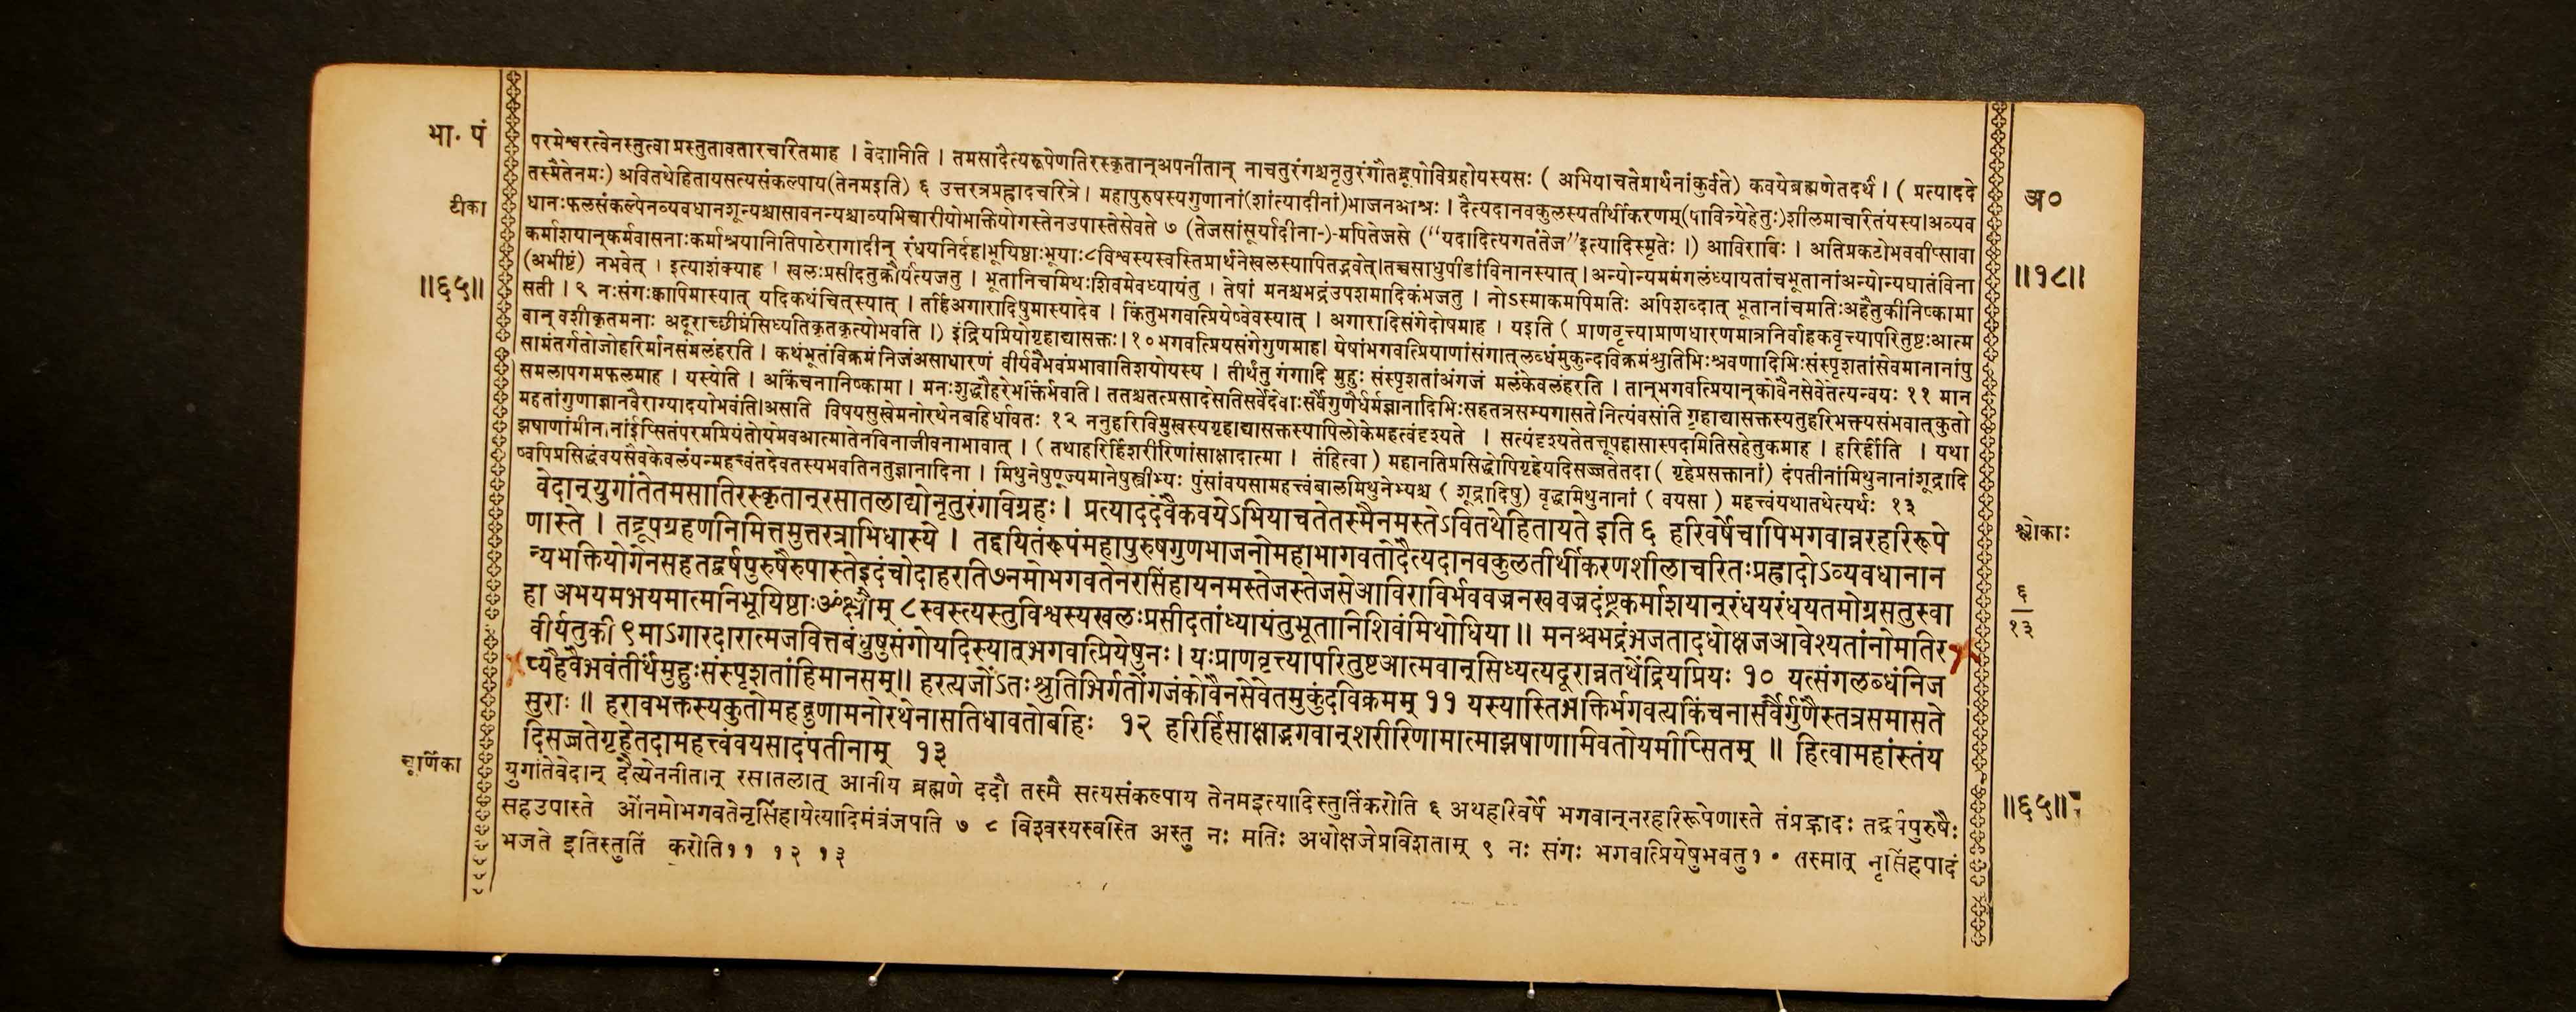 भा. पं
टीका
॥६५॥
परमेश्वरत्वेनस्तुत्वा प्रस्तुतावतारचरितमाह । वेदानिति । तमसादैत्यरूपेणतिरस्कृतान्अपनीतान् नाचतुरंगश्चनृतुरंगौतद्रूपोविग्रहोयस्यसः ( अभियाचतेप्रार्थनांकुर्वते) कवयेब्रह्मणेतदर्थं । ( प्रत्याददे
तस्मैतेनमः) अवितथेहितायसत्यसंकल्पाय(तेनमइति) ६ उत्तरत्रप्रह्लादचरित्रे । महापुरुषस्यगुणानां(शांत्यादीनां)भाजनआश्रः । दैत्यदानवकुलस्यतीर्थीकरणम्(पावित्र्येहेतुः)शीलमाचरितंयस्य।अव्यव
धानःफलसंकल्पेनव्यवधानशून्यश्चासावनन्यश्चाव्यभिचारीयोभाक्तियोगस्तेनउपास्तेसेवते ७ (तेजसांसूर्यादीना-)-मपितेजसे (“यदादित्यगतंतेज”इत्यादिस्मृतेः ।) आविराविः । अतिप्रकटोभववीप्सावा
कर्माशयान्कर्मवासनाःकर्माश्रयानितिपाटेरागादीन् रंधयनिर्दह।भूयिष्ठाःभूयाः८विश्वस्यस्वस्तिप्रार्थनेखलस्यापितद्भवेत्।तच्चसाधुपीडांविनानस्यात् । अन्योन्यममंगलंध्यायतांचभूतानांअन्योन्यघातंविना
(अभीष्टं) नभवेत् । इत्याशंक्याह । खलःप्रसीदतुक्रौर्यंत्यजतु । भूतानिचमिथःशिवमेवध्यायंतु । तेषां मनश्चभद्रंउपशमादिकंभजतु । नोऽस्माकमपिमतिः अपिशब्दात् भूतानांचमतिःअहैतुकीनिष्कामा
सती । ९ नःसंगःक्वापिमास्यात् यदिकथंचित्स्यात् । तर्हिअगारादिषुमास्यादेव । किंतुभगवत्प्रियेष्वेवस्यात् । अगारादिसंगेदोषमाह । यइति ( प्राणवृत्त्याप्राणधारणमात्रनिर्वाहकवृत्त्यापरितुष्टःआत्म
वान् वशीकृतमनाः अदूराच्छीघ्रंसिध्यतिकृतकृत्योभवति ।) इंद्रियप्रियोगृहाद्यासक्तः। १०भगवत्प्रियसंगेगुणमाह। येषांभगवत्प्रियाणांसंगात्लब्धंमुकुन्दविक्रमंश्रुतिभिःश्रवणादिभिःसंस्पृशतांसेवमानानांपु
सामंतर्गतोजोहरिर्मानसंमलंहरति । कथंभूतंविक्रमं निजंअसाधारणं वीर्यवैभवंप्रभावातिशयोयस्य । तीर्थंतु गंगादि मुहुः संस्पृशतांअंगजं मलंकेवलंहरति । तान्भगवत्प्रियान्कोवैनसेवेतेत्यन्वयः ११ मान
समलापगमफलमाह । यस्येति । अकिंचनानिष्कामा । मनःशुद्धौहरेर्भक्तिर्भवति । ततश्चतत्प्रसादेसतिसर्वेदेवाःसर्वैर्गुणैर्धर्मज्ञानादिभिःसहतत्रसम्यगासते नित्यंवसंति गृहाद्यासक्तस्यतुहरिभक्त्यसंभवात्कुतो
महतांगुणाज्ञानवैराग्यादयोभवंति।असति विषयसुखेमनोरथेनबहिर्धावतः १२ ननुहरिविमुखस्यगृहाद्यासक्तस्यापिलोकेमहत्वंदृश्यते । सत्यंदृश्यतेतत्तूपहासास्पदमितिसहेतुकमाह । हरिर्हीति । यथा
झषाणांमीनानांईप्सितंपरमप्रियंतोयमेवआत्मातेनविनाजीवनाभावात् । ( तथाहरिर्हिशरीरिणांसाक्षादात्मा । तंहित्वा ) महानतिप्रसिद्धोपिगृहेयदिसज्जतेतदा ( गृहेप्रसक्तानां) दंपतीनांमिथुनानांशूद्रादि
ष्वपिप्रसिद्धंवयसैवकेवलंयन्महत्त्वंतदेवतस्यभवतिनतुज्ञानादिना । मिथुनेषुपूज्यमानेषुस्त्रीभ्यः पुंसांवयसामहत्त्वंबालमिथुनेभ्यश्च ( शूद्रादिषु) वृद्धमिथुनानां ( वयसा ) महत्त्वंयथातथेत्यर्थः १३
वेदान्युगांतेतमसातिरस्कृतान्रसातलाद्योनृतुरंगविग्रहः । प्रत्याददेवैकवयेऽभियाचतेतस्मैनमस्तेऽवितथेहितायते इति ६ हरिवर्षेचापिभगवान्नरहरिरूपे
णास्ते । तद्रूपग्रहणनिमित्तमुत्तरत्राभिधास्ये । तद्दयितंरूपंमहापुरुषगुणभाजनोमहाभागवतोदैत्यदानवकुलतीर्थीकरणशीलाचरितःप्रह्लादोऽव्यवधानान
न्यभक्तियोगेनसहतद्वर्षपुरुषैरुपास्तेइदंचोदाहरति७नमोभगवतेनरसिंहायनमस्तेजस्तेजसेआविराविर्भववज्रनखवज्रदंष्ट्रकर्माशयान्रंधयरंधयतमोग्रसतुस्वा
हा अभयमभयमात्मनिभूयिष्ठाःॐक्ष्रौम् ८स्वस्त्यस्तुविश्वस्यखलःप्रसीदतांध्यायंतुभूतानिशिवंमिथोधिया ॥ मनश्चभद्रंभजतादधोक्षजआवेश्यतांनोमतिर
वीर्यतुकी ९माऽगारदारात्मजवित्तबंधुषुसंगोयदिस्यात्भगवत्प्रियेषुनः। यःप्राणवृत्त्यापरितुष्टआत्मवान्सिध्यत्यदूरान्नतथेंद्रियप्रियः १० यत्संगलब्धंनिज
प्यहैवैभवंतीर्थंमुहुःसंस्पृशतांहिमानसम्॥ हरत्यजोंऽतःश्रुतिभिर्गतोंगजंकोवैनसेवेतमुकुंदविक्रमम् ११ यस्यास्तिभक्तिर्भगवत्यकिंचनासर्वैर्गुणैस्तत्रसमासते
सुराः ॥ हरावभक्तस्यकुतोमहद्गुणामनोरथेनासतिधावतोबहिः १२ हरिर्हिसाक्षाद्भगवान्शरीरिणामात्माझषाणामिवतोयमीप्सितम् ॥ हित्वामहांस्तंय
दिसज्जतेगृहेतदामहत्त्वंवयसादंपतीनाम् १३
चूर्णिका
युगांतेवेदान् दैत्येननीतान् रसातलात् आनीय ब्रह्मणे ददौ तस्मै सत्यसंकल्पाय तेनमइत्यादिस्तुतिंकरोति ६ अथहरिवर्षे भगवान्नरहरिरूपेणास्ते तंप्रह्लादः तद्वर्षपुरुषैः
सहउपास्ते ओंनमोभगवतेनृसिंहायेत्यादिमंत्रंजपति ७ ८ विश्वस्यस्वस्ति अस्तु नः मतिः अधोक्षजेप्रविशताम् ९ नः संगः भगवत्प्रियेषुभवतु१० तस्मात् नृसिंहपादं
भजते इतिस्तुतिं करोति११ १२ १३
अ०
॥१८॥
श्लोकाः
६
१३
॥६५॥